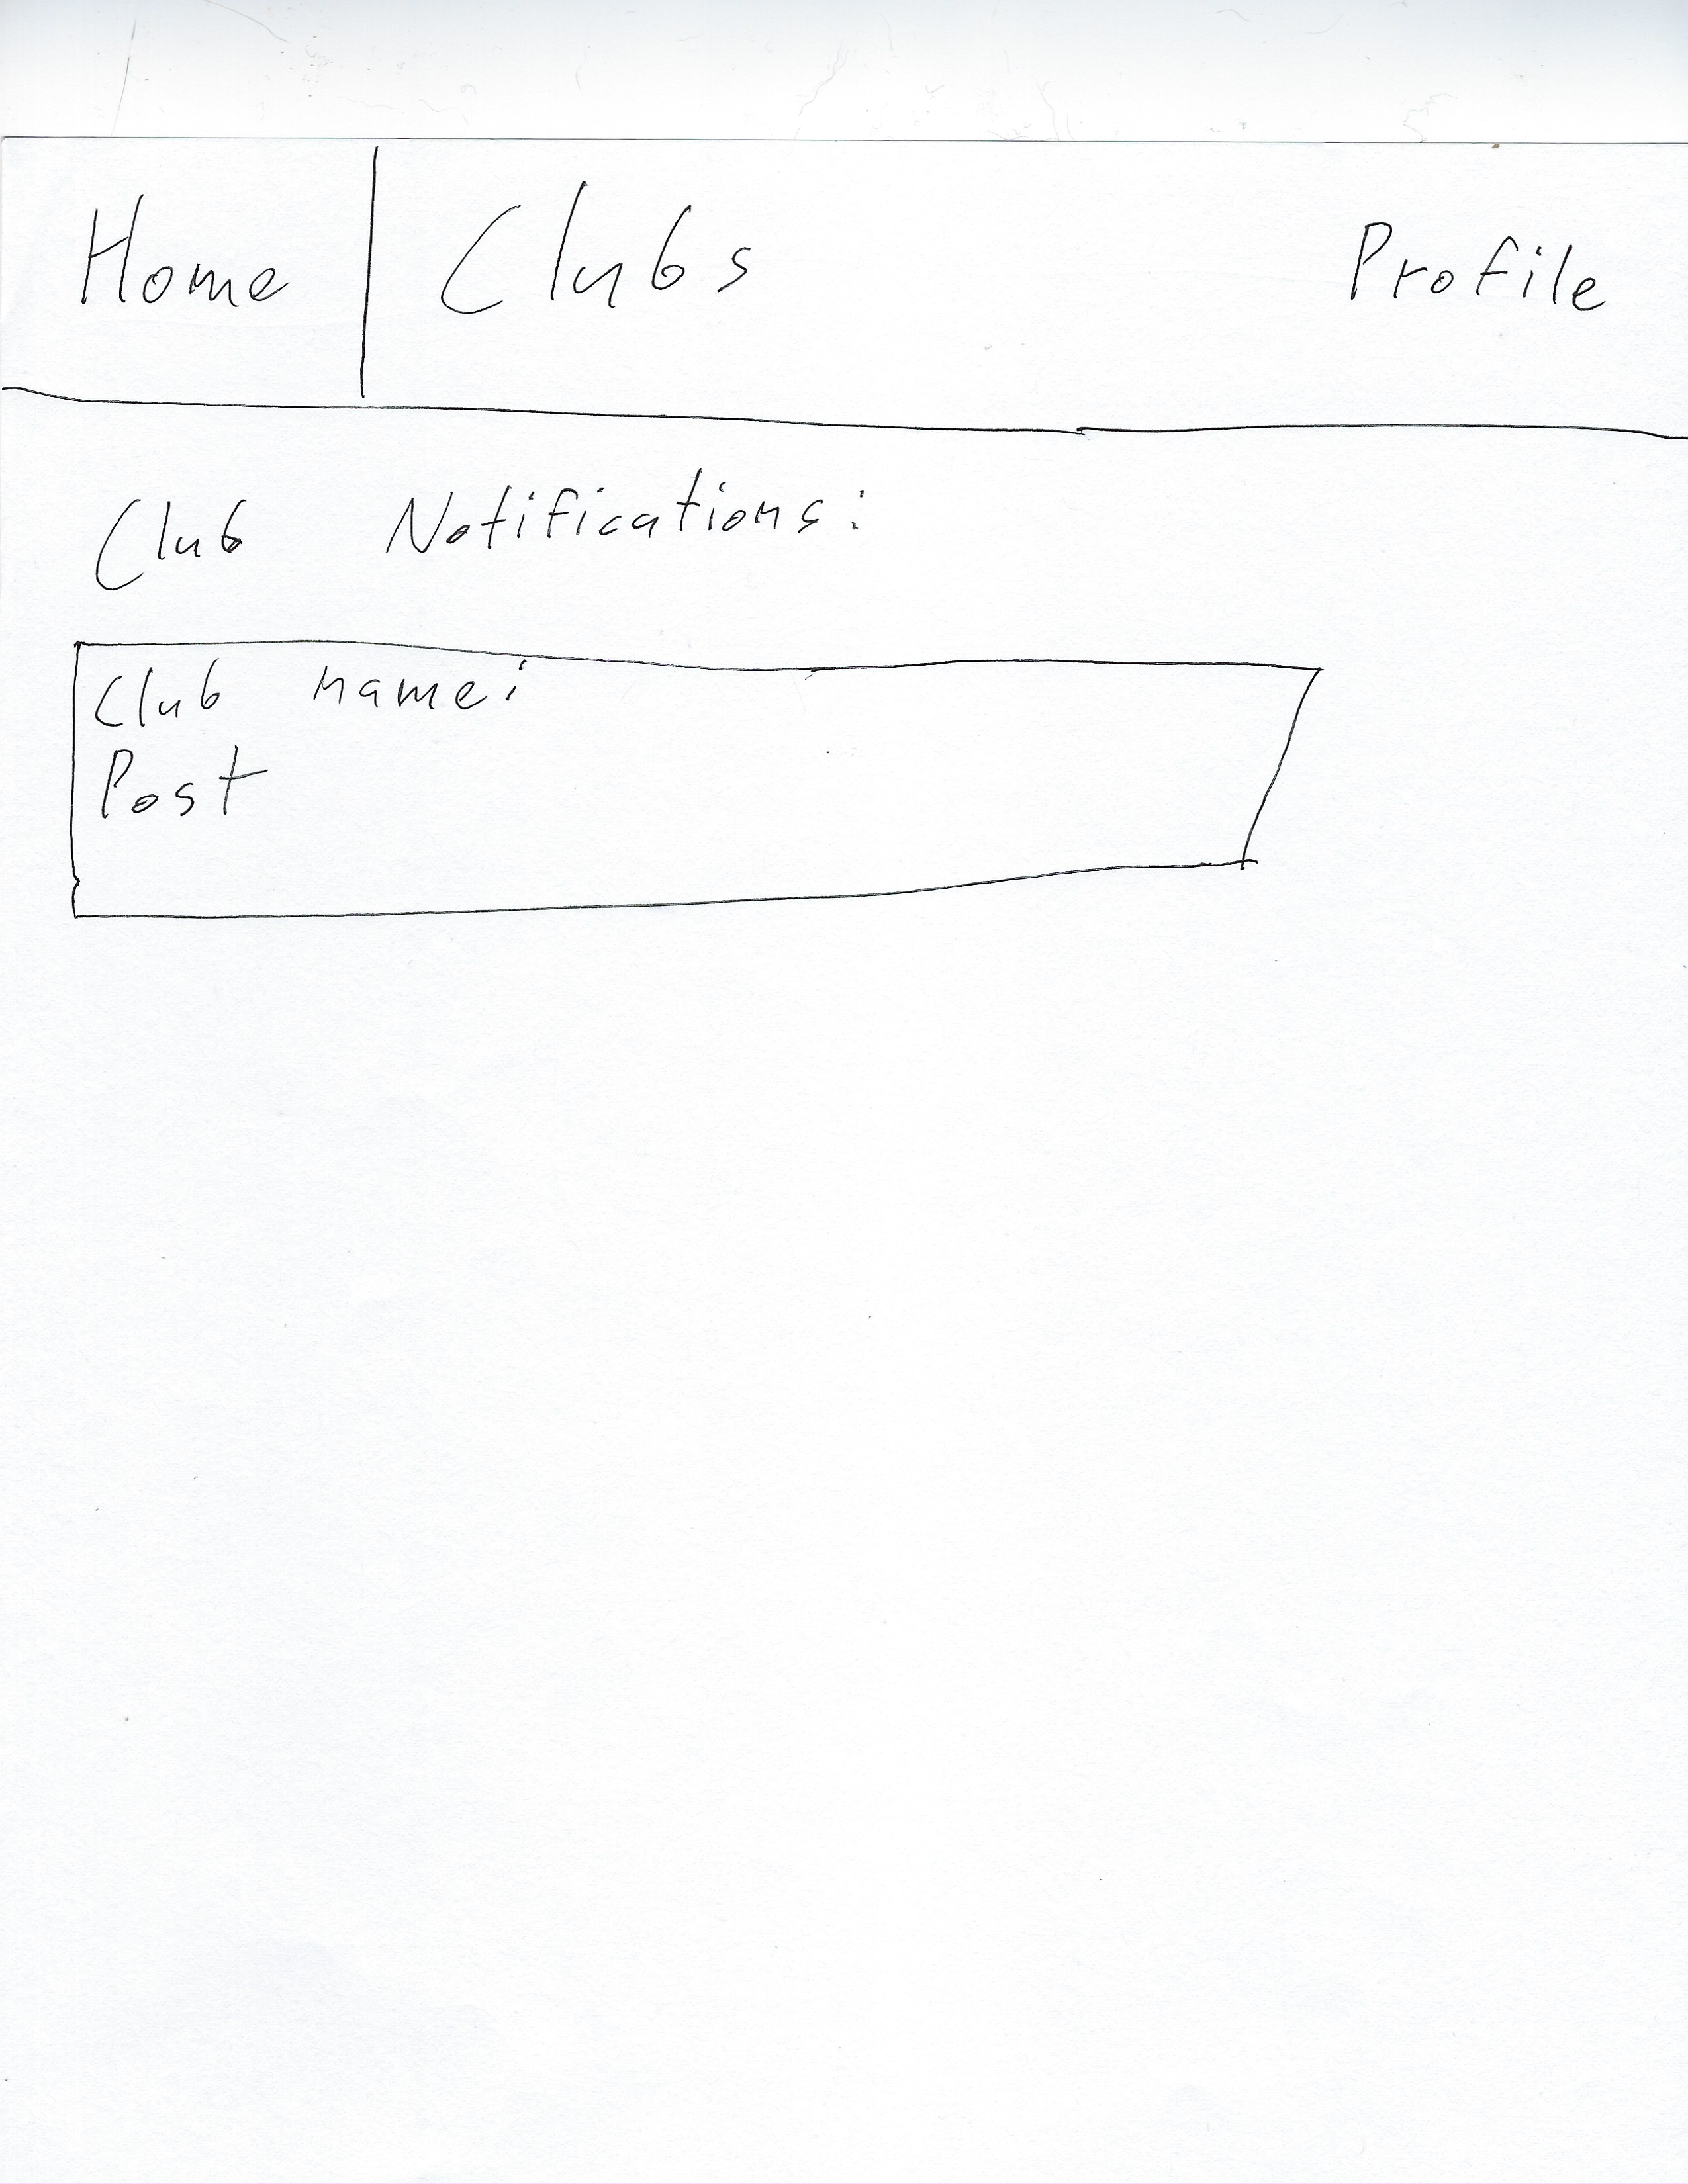 Home Clubs Profile
Club Notifications:
Club name:
Post